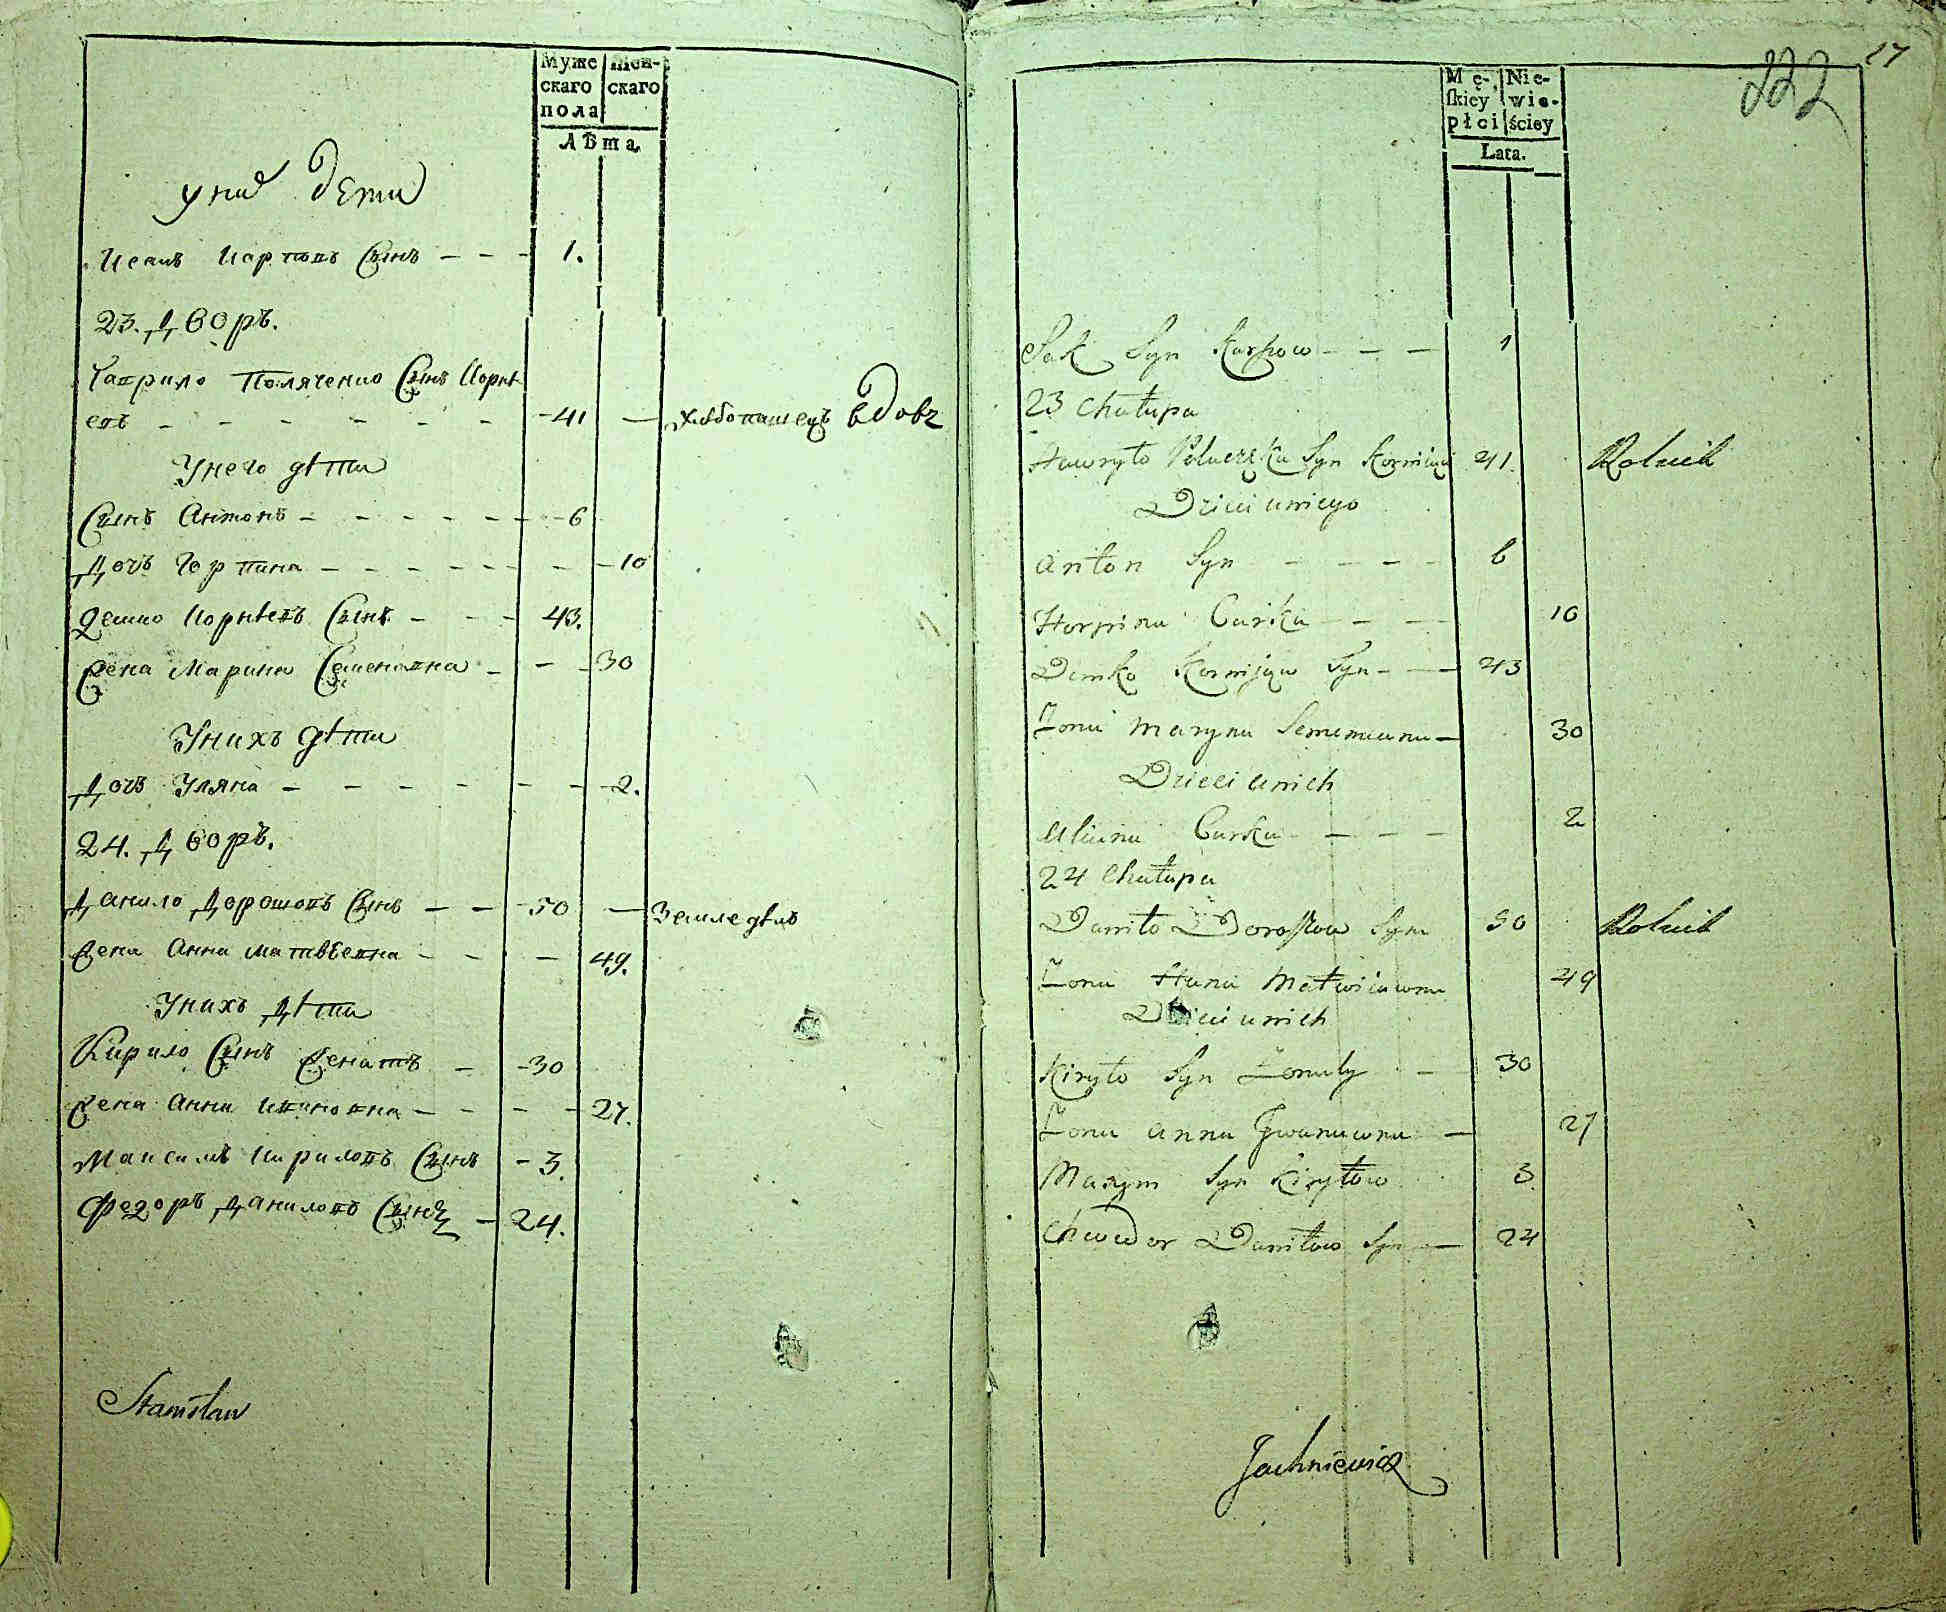 Муже
скаго
пола
Жен-
скаго
Лѣта
У них дети
Исакъ Карповъ Сынъ - - - 1.
23. Дворъ.
Гаврило Поляченко Сынъ Корнѣ
евъ - - - - - - 41 — хлѣбопашецъ вдовъ
У него дѣти
Сынъ Антонъ - - - - - 6
Дочъ Горпина - - - - - - 10
Демко Корнѣевъ Сынъ - - - 43.
Жена Марина Семеновна - - - 30
У нихъ дѣти
Дочъ Уляна - - - - - - 2.
24. Дворъ.
Данило Дорошовъ Сынъ - - 50 — Земледѣлъ
Жена Анна Матвѣевна - - - 49.
У нихъ Дѣти
Кирило Сынъ Женатъ - 30
Жена Анна Ивановна - - - - 27.
Максимъ Кириловъ Сынъ - 3.
Федоръ Даниловъ Сынъ - 24.
Stanisław
17
222
Mę-
skiey
płci
Nie-
wie-
ściey
Lata.
Sak Syn Karpow - - - 1
23 Chałupa
Hawryło Syn 41 Rolnik
Dzieci u niego
Anton Syn - - - - 6
Horpina Curka - - - 10
Demko Kornijow Syn - - - 43
Żona Maryna Semenowna - 30
Dzieci u nich
Uliana Curka - - - - 2
24 Chałupa
Daniło Doroszow Syn 50 Rolnik
Żona Hana Matwiiowna 49
Dzieci u nich
Kiryło Syn Żonaty - 30
Żona Anna Iwanowna - 27
Maxym Syn Kiryłow 3
Chwedor Daniłow Syn - 24
Jachniewicz